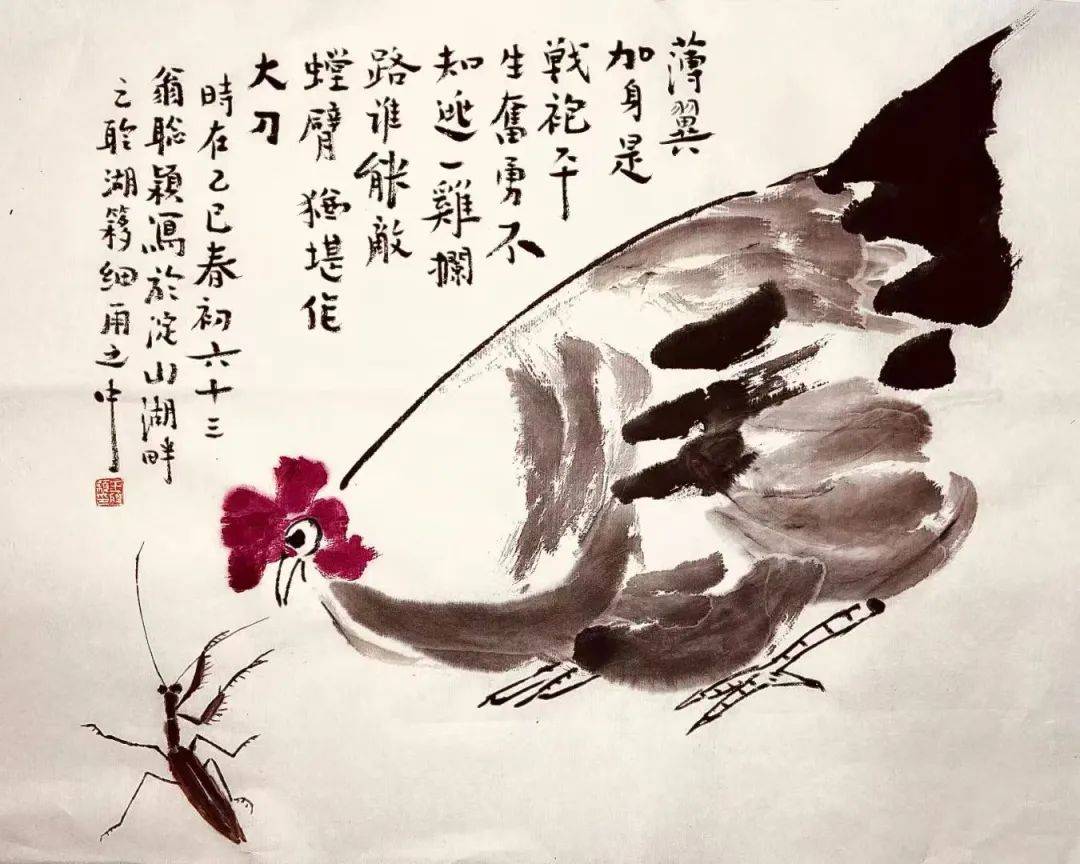 薄翼
加身是
戦袍平
生奮勇不
知逃一雞攔
路誰能敵
螳臂猶堪作
大刀
時在乙巳春初六十三
翁聡穎寫於淀山湖畔
之聆湖簃細雨之中